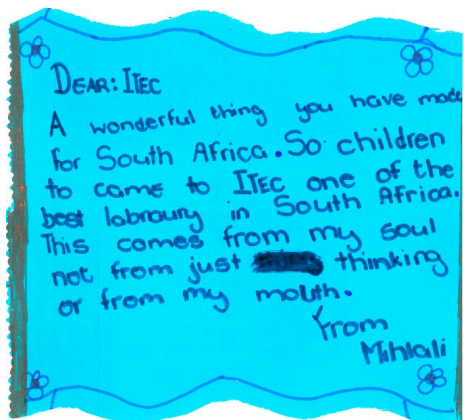 DEAR: ITEC
A wonderful thing you have made
for South Africa. So children
to came to ITEC one of the
best labroury in South Africa.
This comes from my soul
not from just thinking
or from my mouth.
From
Mihlali